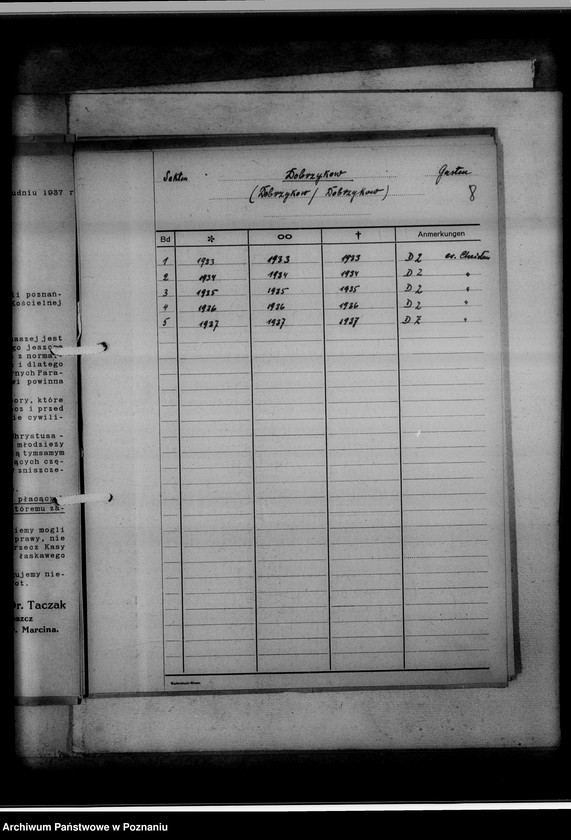 udniu 1937 r
ii poznan-
Kościelnej
aszej jest
go jeszcze
z norma-
i dlatego
nych Para-
wi powinna
ory, które
cz i przed
ie cywili-
hrystusa -
młodzieży
ą tymsamym
ących czę-
zniszcze-
płacąc
tóremu za-
iemy mogli
prawy, nie
rzecz Kasy
łaskawego
ujemy nie-
ot.
r. Taczak
szcz
. Marcina.
Dobrzykow Gostin
(Dobrzykow / Dobrzykow) 8
Bd * oo † Anmerkungen
1 1933 1933 1933 D2 ev. Christen
2 1934 1934 1934 D2 "
3 1935 1935 1935 D2 "
4 1936 1936 1936 D2 "
5 1937 1937 1937 D2 "
Archiwum Państwowe w Poznaniu